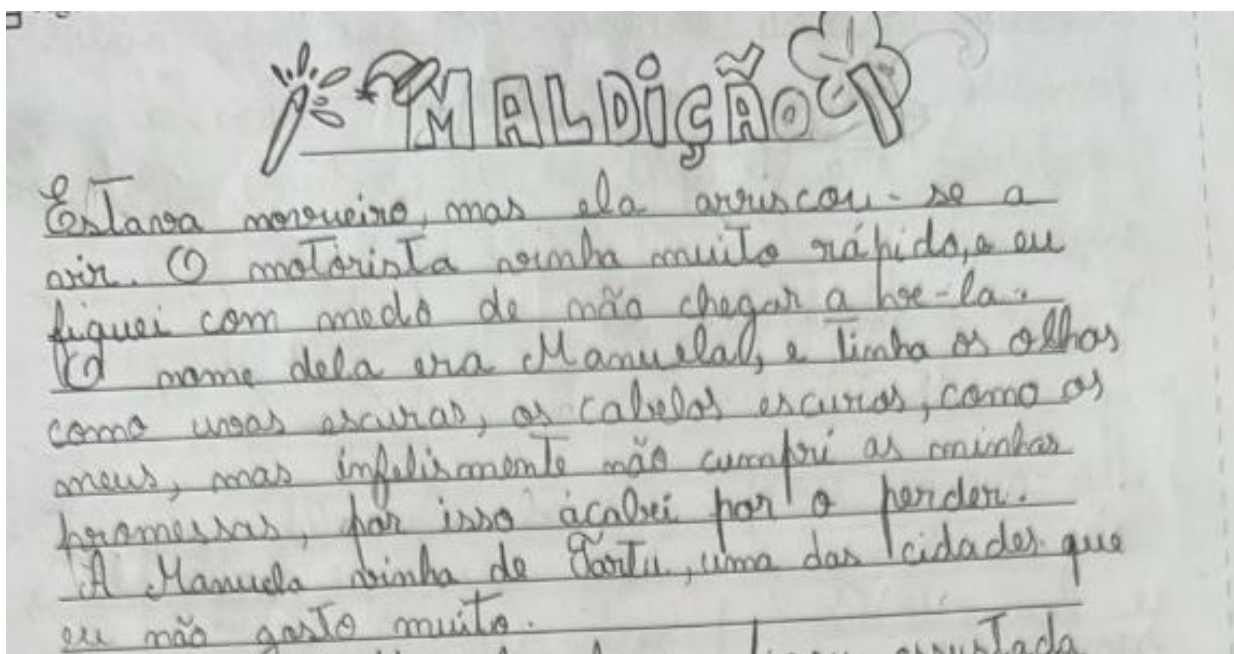 MALDIÇÃO
Estava nevoueiro, mas ela arriscou-se a
vir. O motorista vinha muito rápido, e eu
fiquei com medo de não chegar a
O nome dela era Manuela, e tinha os olhos
como uvas escuras, os cabelos escuros, como os
meus, mas infelismente não cumpri as minhas
promessas, por isso acabei por o perder.
A Manuela vinha de Tartu, uma das cidades que
eu não gosto muito.
assustada